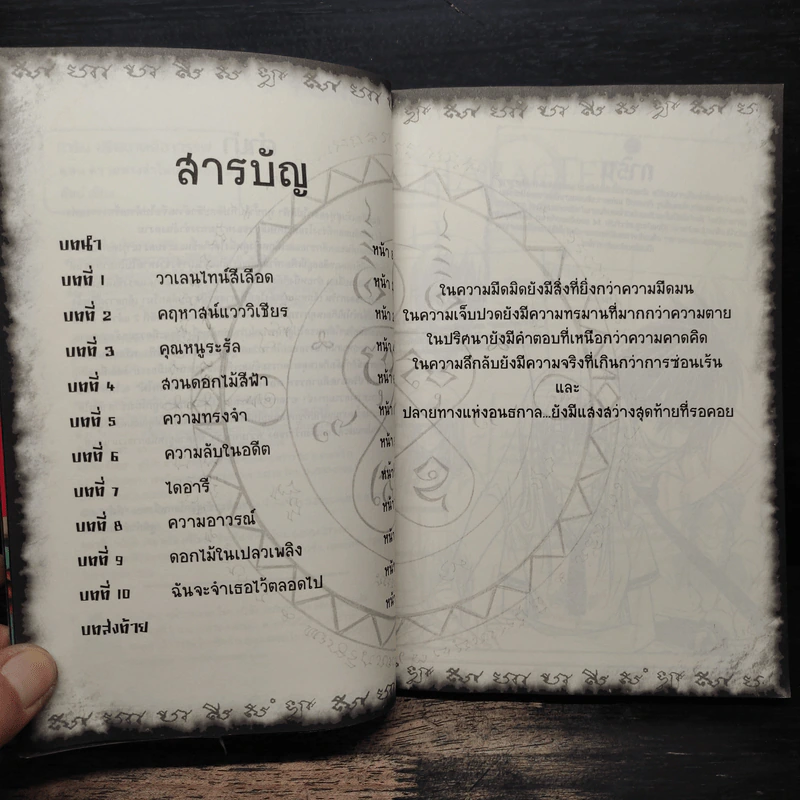 สารบัญ
บทนำ หน้า
บทที่ 1 วาเลนไทน์สีเลือด หน้า
บทที่ 2 คฤหาสน์แวววิเชียร หน้า
บทที่ 3 คุณหนูระรัล หน้า
บทที่ 4 สวนดอกไม้สีฟ้า หน้า
บทที่ 5 ความทรงจำ หน้า
บทที่ 6 ความลับในอดีต หน้า
บทที่ 7 ไดอารี่ หน้า
บทที่ 8 ความอาวรณ์ หน้า
บทที่ 9 ดอกไม้ในเปลวเพลิง หน้า
บทที่ 10 ฉันจะจำเธอไว้ตลอดไป หน้า
บทส่งท้าย
ในความมืดมิดยังมีสิ่งที่ยิ่งกว่าความมืดมน
ในความเจ็บปวดยังมีความทรมานที่มากกว่าความตาย
ในปริศนายังมีคำตอบที่เหนือกว่าความคาดคิด
ในความลึกลับยังมีความจริงที่เกินกว่าการซ่อนเร้น
และ
ปลายทางแห่งอนธกาล...ยังมีแสงสว่างสุดท้ายที่รอคอย